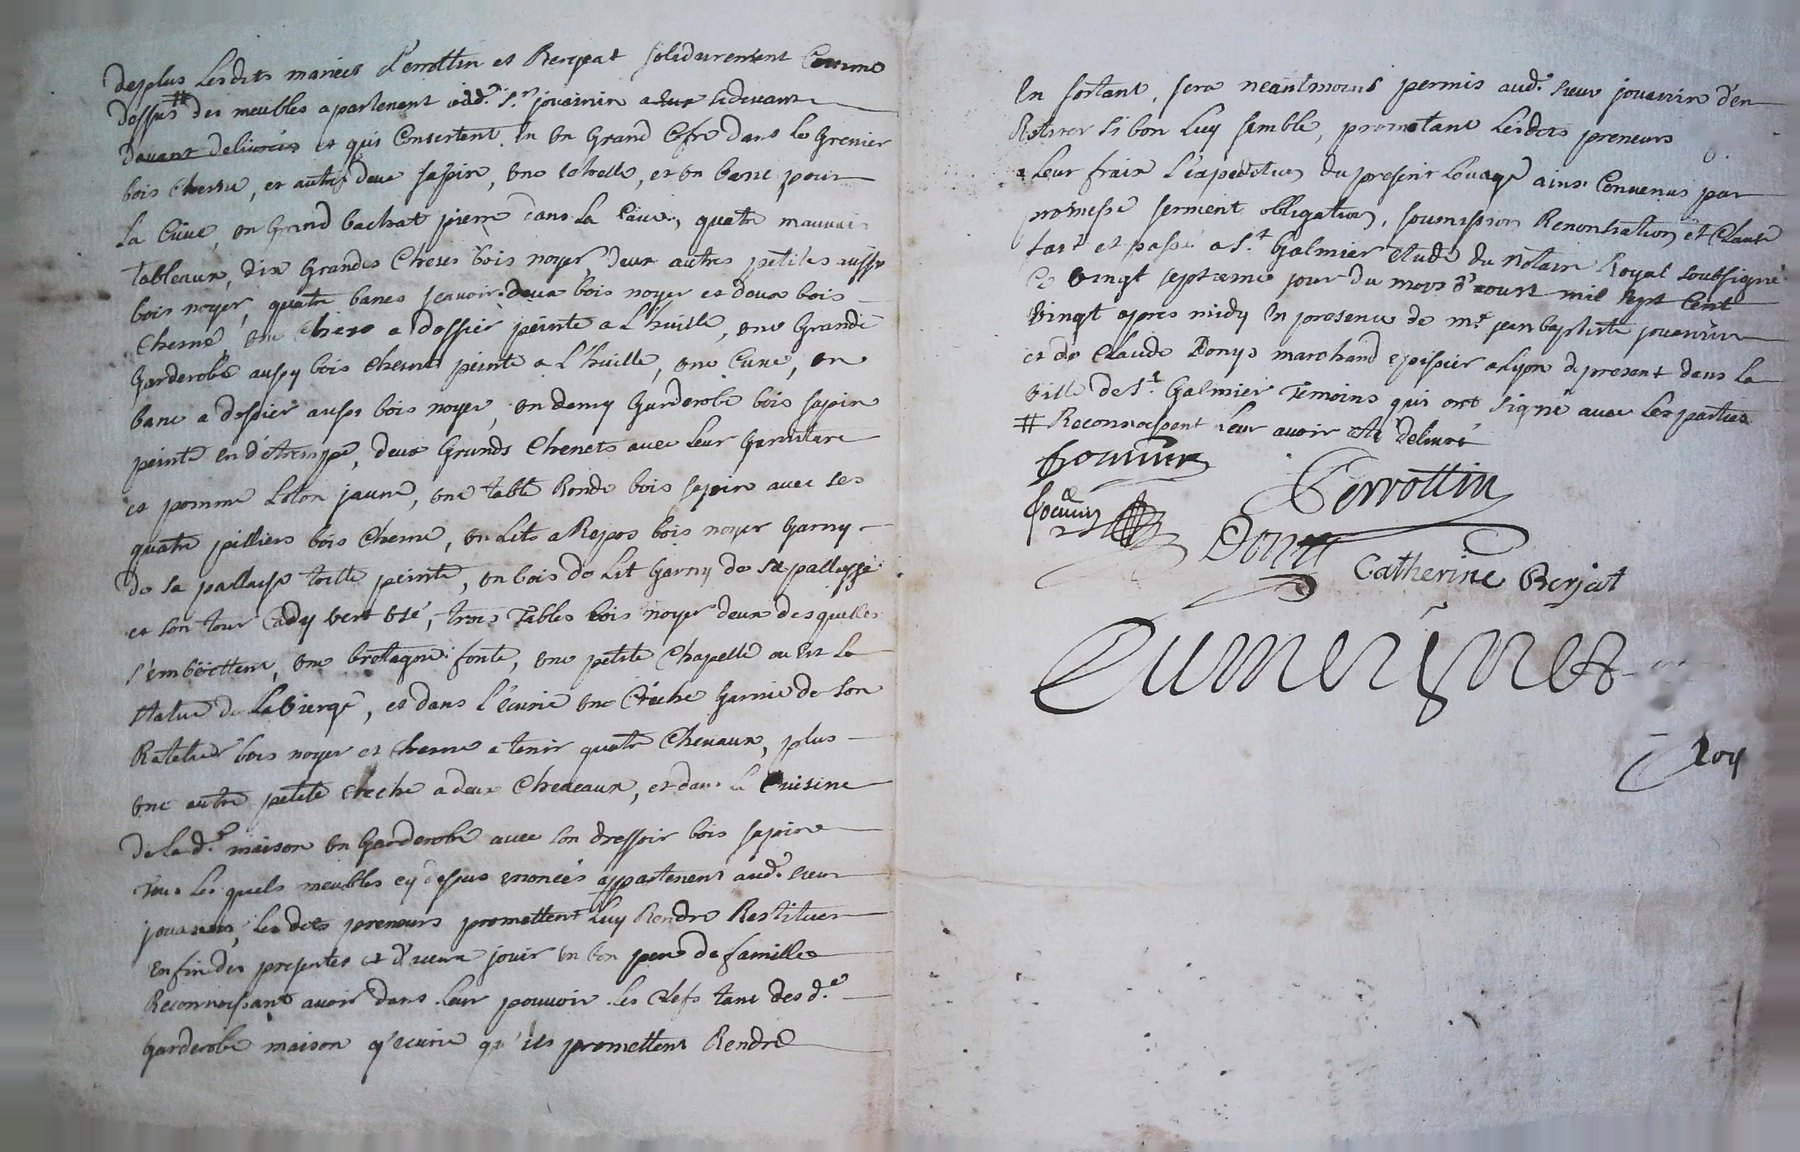 desplus lesdits mariées Perrottin et Berjeat solidairement Comme
dessus # des meubles apartenent aud.t S.r jouainin cidevant
davant delivrées et qui Consertent En Un Grand Cofre dans le Grenier
bois chesne, et autres deux sapin, une , et un banc pour
La Cuve, un Grand bachat pierre dans la Cave, quatre mauvais
tableaux, dix Grandes Cheses bois noyer deux autres petites aussy
bois noyer, quatre bancs scavoir deux bois noyer et deux bois
Chesne, une Chese a dossier peinte a L'huille, une Grande
Garderobe aussy bois chesne peinte a l'huille, une Cuve, un
banc a dossier aussy bois noyer, un demy Garderobe bois sapin
peinte en d'étrempe, deux Grands Chenets avec leur Garniture
et pomme Loton jaune, une table Ronde bois sapin avec ses
quatre pilliers bois Chesne, un Lits a Repos bois noyer Garny
de sa pallasse toille peinte, un bois de Lit Garny de sa pallasse
et son tour Cady vert Usé, trois Tables bois noyer deux desquelles
s'emboettent, une bretagne fonte, une petite Chapelle ou Est La
statue de La Vierge, et dans l'écurie une Crêche Garnie de son
Ratelier bois noyer et Chesne a tenir quatre Chevaux, plus
une autre petite creche a deux Cheveaux, et dans la Cuisine
de la d.e maison un Garderobe avec son dressoir bois sapin
Tous Les quels meubles cy dessus enoncées appartenent aud.t sieur
jouainin, Lesdits preneurs promettent Luy Rendre Restituer
En fin des presentes et d'iceux jouir en bon pere de famille
Reconnoissant avoir dans leur pouvoir les clefs tant des d.e
Garderobe maison q'ecurie qu'ils promettent Rendre
En sortant, sera neantmoins permis aud.t sieur jouainin d'en
Retirer si bon Luy semble, prometant Lesdits preneurs
a Leur fraix l'expedition du present Louage ainsi Convenus par
promesse serment obligation, soumission Renontiation et Clause
fait et passé a S.t Galmier étude du Notaire Royal soubsigné
Ce vingt septieme jour du mois d'aoust mil sept Cent
Vingt apres midy En presence de m.e jean baptiste jouainin
et de Claude Donys marchand epissier a Lyon de present dans La
Ville de S.t Galmier Temoins qui ont signé avec Les parties
# Reconnoissent Leur avoir été delivré
Jouainin
Perrottin
Jouainin
Donys
Catherine Berjat
Dumeignet
Roy